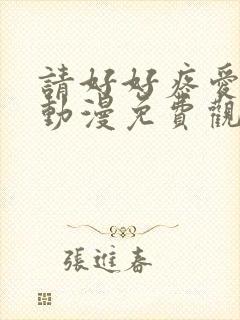 請好好疼愛
動漫免費觀
張進春